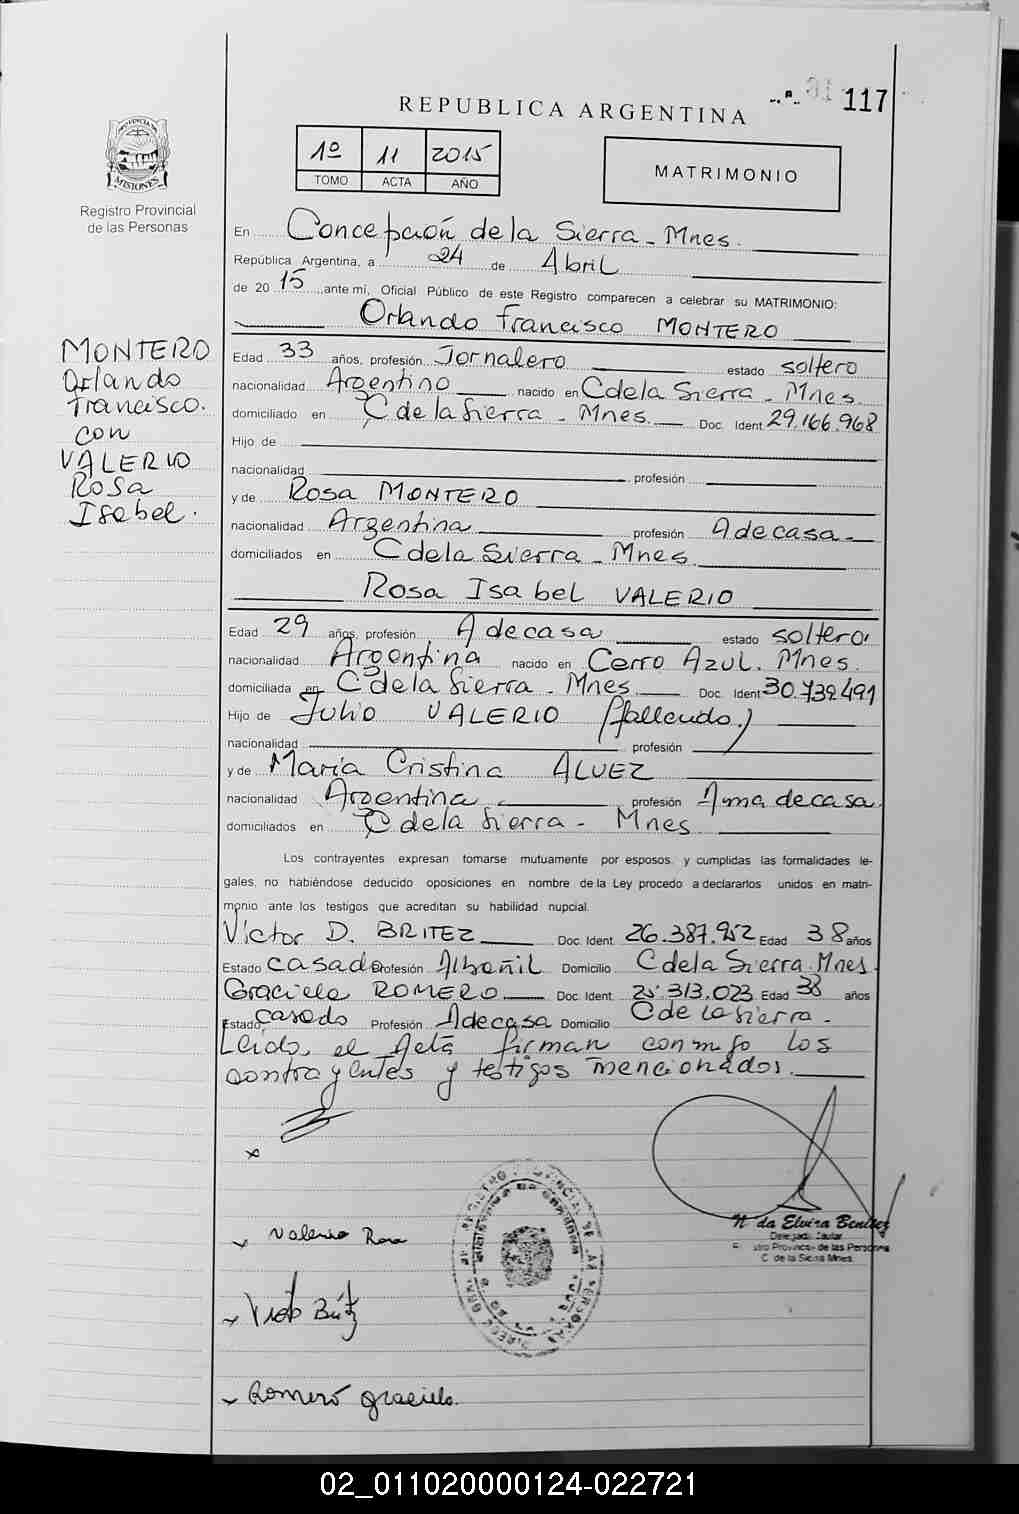 01 117
REPUBLICA ARGENTINA
1º 11 2015
TOMO ACTA AÑO
MATRIMONIO
PROVINCIA DE
MISIONES
Registro Provincial
de las Personas
En Concepción de la Sierra - Mnes.
República Argentina, a 24 de Abril
de 2015 ante mi, Oficial Público de este Registro comparecen a celebrar su MATRIMONIO:
Orlando Francisco MONTERO
MONTERO
Orlando
Francisco.
con
VALERIO
Rosa
Isabel.
Edad 33 años, profesión Jornalero estado soltero
nacionalidad Argentino nacido en C de la Sierra - Mnes.
domiciliado en C de la Sierra - Mnes. Doc. Ident 29.166.968
Hijo de
nacionalidad profesión
y de Rosa MONTERO
nacionalidad Argentina profesión A de casa
domiciliados en C de la Sierra - Mnes.
Rosa Isabel VALERIO
Edad 29 años, profesión A de casa estado soltero.
nacionalidad Argentina nacido en Cerro Azul. Mnes.
domiciliada en C de la Sierra - Mnes. Doc. Ident 30.732.491
Hijo de Julio VALERIO (fallecido)
nacionalidad profesión
y de María Cristina ALVEZ
nacionalidad Argentina profesión Ama de casa.
domiciliados en C de la Sierra - Mnes
Los contrayentes expresan tomarse mutuamente por esposos, y cumplidas las formalidades le-
gales, no habiéndose deducido oposiciones en nombre de la Ley procedo a declararlos unidos en matri-
monio ante los testigos que acreditan su habilidad nupcial.
Victor D. BRITEZ Doc. Ident. 26.387.952 Edad 38 años
Estado casado Profesión Albañil Domicilio C de la Sierra. Mnes.
Graciela ROMERO Doc. Ident. 25.313.023 Edad 38 años
Estado casado Profesión A de casa Domicilio C de la Sierra -
Leida, el Acta firman conmigo los
contrayentes y testigos mencionados.
Valerio Rosa
Elvira Benitez
Registro Provincial de las Personas
C. de la Sierra Mnes.
Romero graciela.
02_011020000124-022721